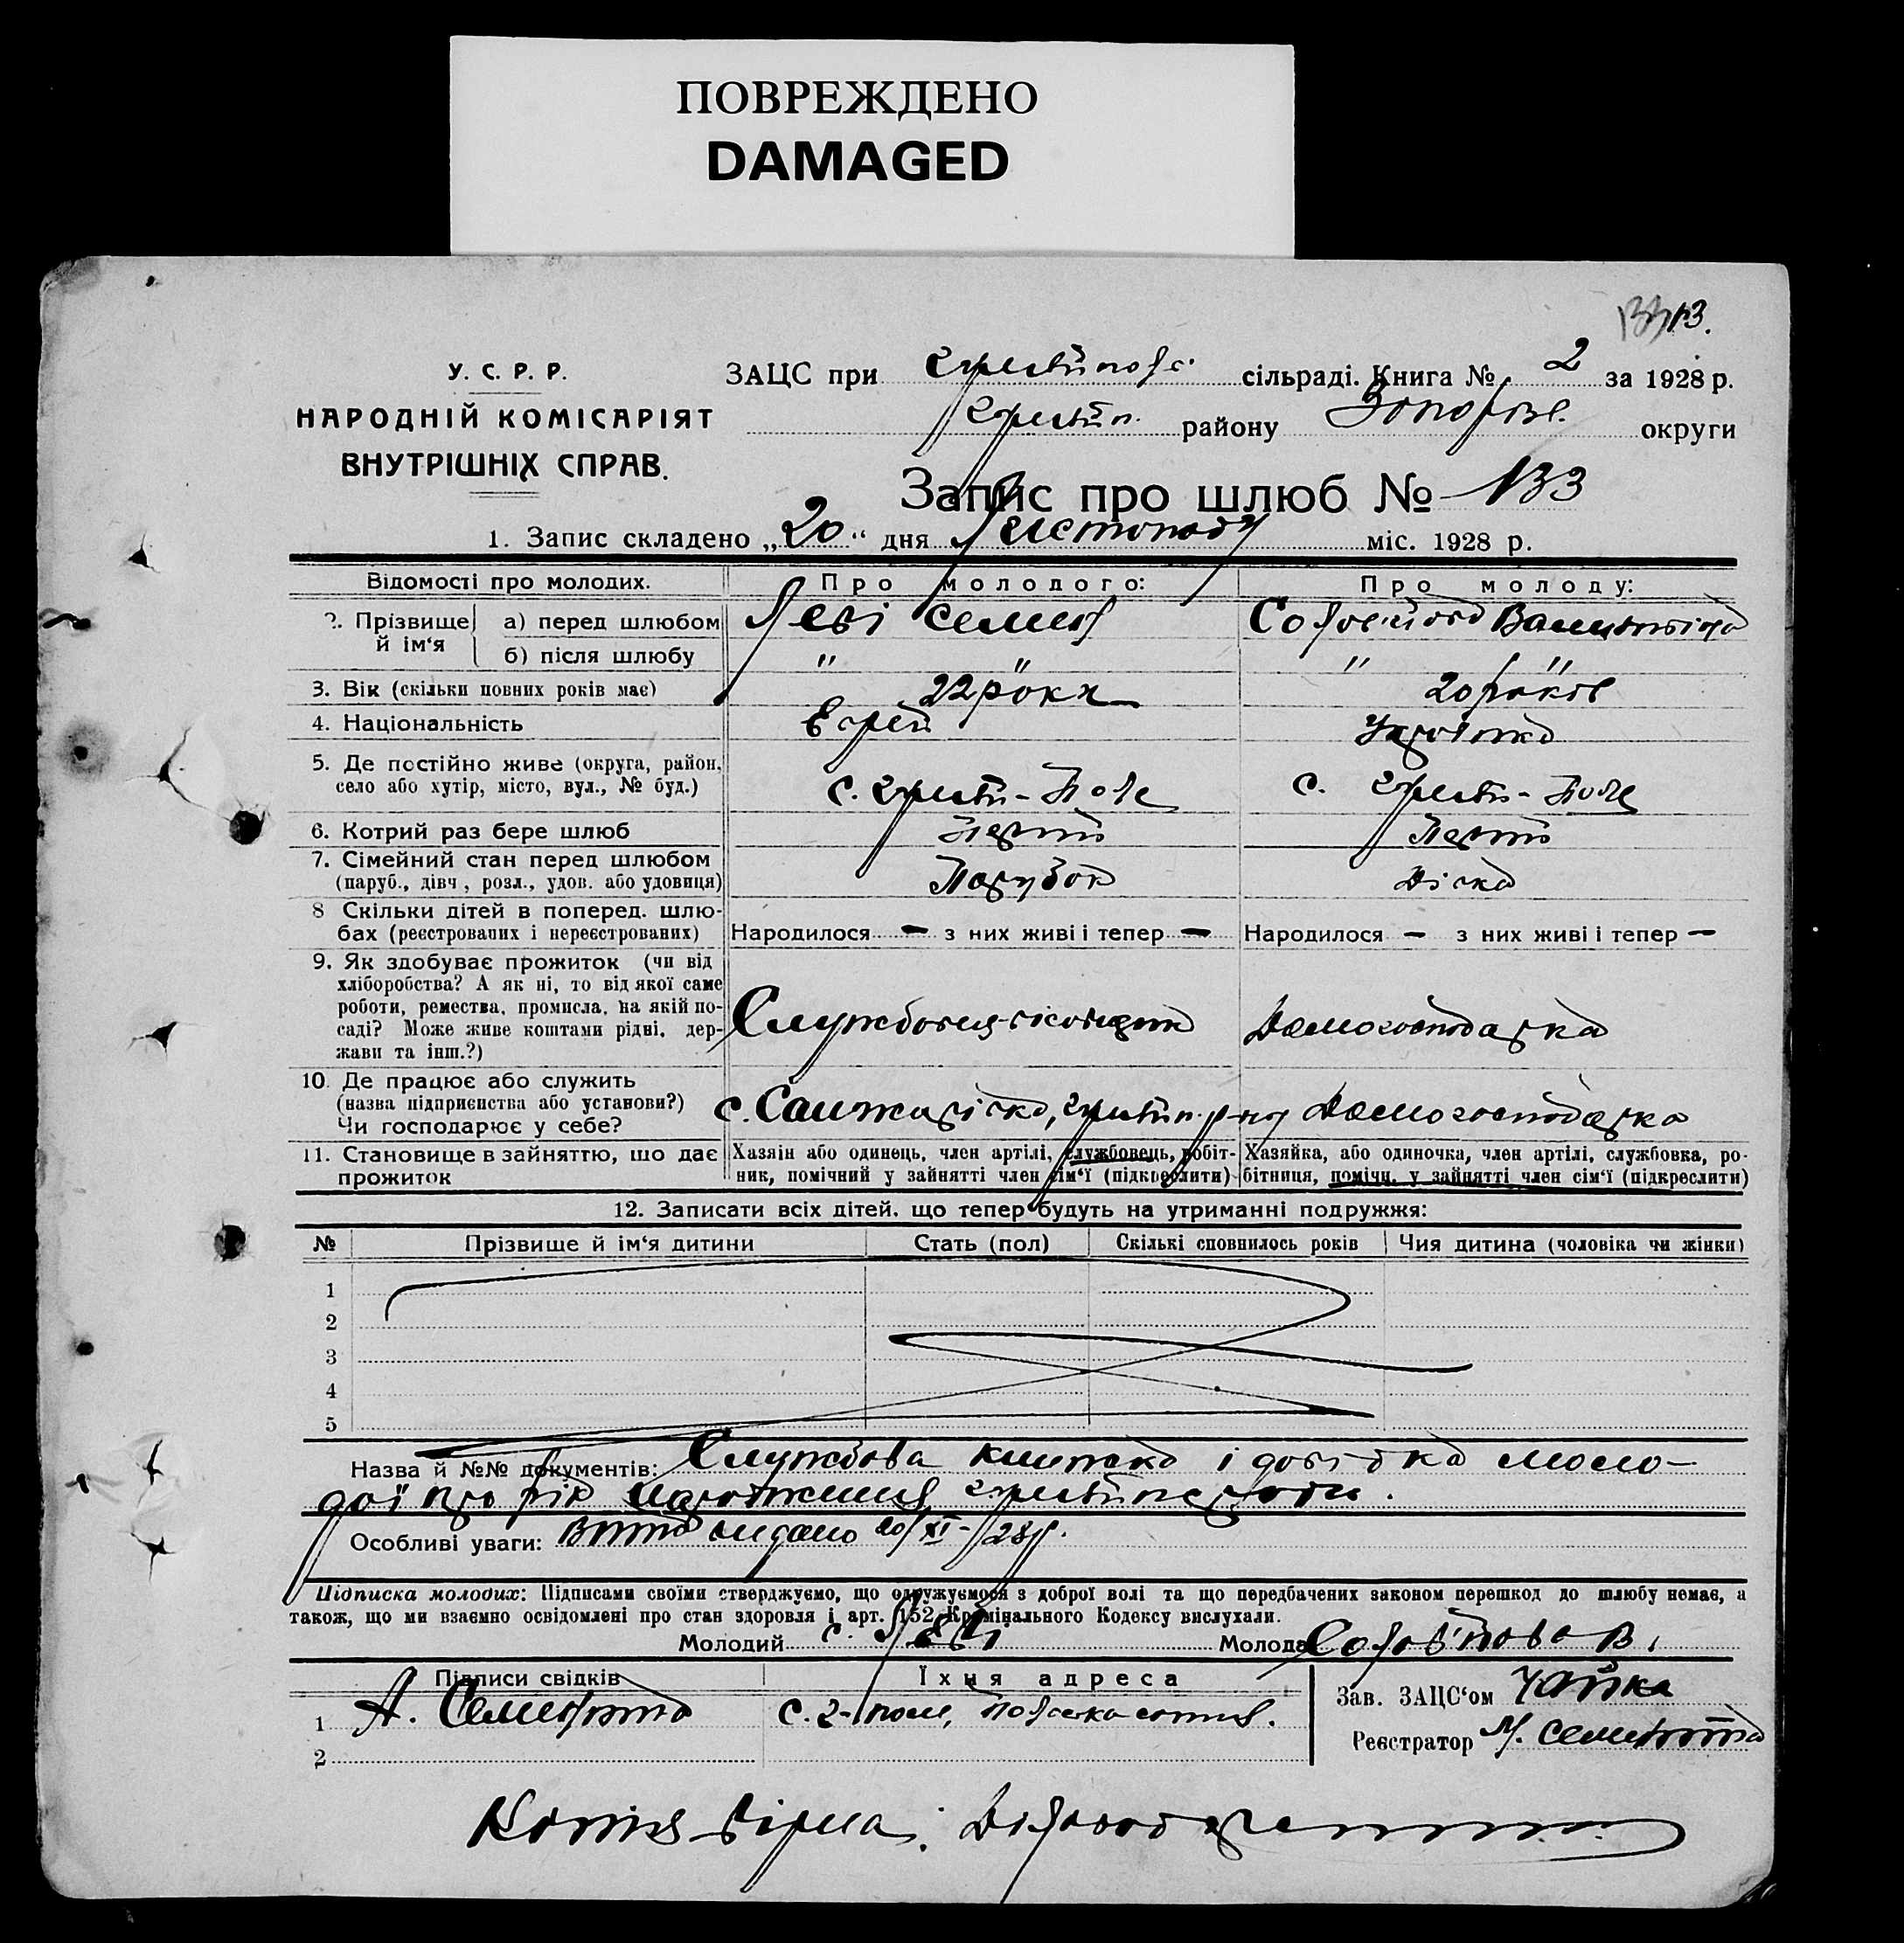 ПОВРЕЖДЕНО
DAMAGED
133 ВЗ.
У. С. Р. Р.
НАРОДНІЙ КОМІСАРІЯТ
ВНУТРІШНІХ СПРАВ.
ЗАЦС при сільраді. Книга № 2 за 1928 р.
району Запоріз. округи
Запис про шлюб № 133
1. Запис складено „20“ дня Листопаду міс. 1928 р.
Відомості про молодих. Про молодого: Про молоду:
2. Прізвище й ім‘я а) перед шлюбом Леві Семен Соловйова Валентина
б) після шлюбу " " " "
3. Вік (скільки повних років має) 22 роки 20 років
4. Національність Єврей Українка
5. Де постійно живе (округа, район, село або хутір, місто, вул., № буд.) с. Гуляй-Поле с. Гуляй-Поле
6. Котрий раз бере шлюб Перший Перший
7. Сімейний стан перед шлюбом (паруб., дівч., розл., удов. або удовиця) Парубок Дівка
8 Скільки дітей в поперед. шлюбах (реєстрованих і нереєстрованих) Народилося — з них живі і тепер — Народилося — з них живі і тепер —
9. Як здобуває прожиток (чи від хліборобства? А як ні, то від якої саме роботи, ремества, промисла, на якій посаді? Може живе коштами рідні, держави та інш.?) Службовець Домогосподарка
10. Де працює або служить (назва підприєнства або установи?) Чи господарює у себе? с. Домогосподарка
11. Становище в зайняттю, що дає прожиток Хазяін або одинець, член артілі, службовець, робітник, помічний у зайнятті член сім‘ї (підкреслити) Хазяйка, або одиночка, член артілі, службовка, робітниця, помічн. у зайнятті член сім‘ї (підкреслити)
12. Записати всіх дітей, що тепер будуть на утриманні подружжя:
№ Прізвище й ім‘я дитини Стать (пол) Скількі сповнилось років Чия дитина (чоловіка чи жінки)
1
2
3
4
5
Назва й №№ документів: Службова книжка і довідка моло-
дої про рік народження
Особливі уваги: видано 20/XI-28р.
Підписка молодих: Підписами своїми стверджуємо, що одружуємося з доброї волі та що передбачених законом перешкод до шлюбу немає, а
також, що ми взаємно освідомлені про стан здоровля і арт. 152 Кримінального Кодексу вислухали.
Молодий С. Леві Молода Соловйова В.
Підписи свідків Їхня адреса
Зав. ЗАЦС‘ом Чайка
1 А. с. Г-Поле,
Реєстратор
2
Копія вірна: Діловод